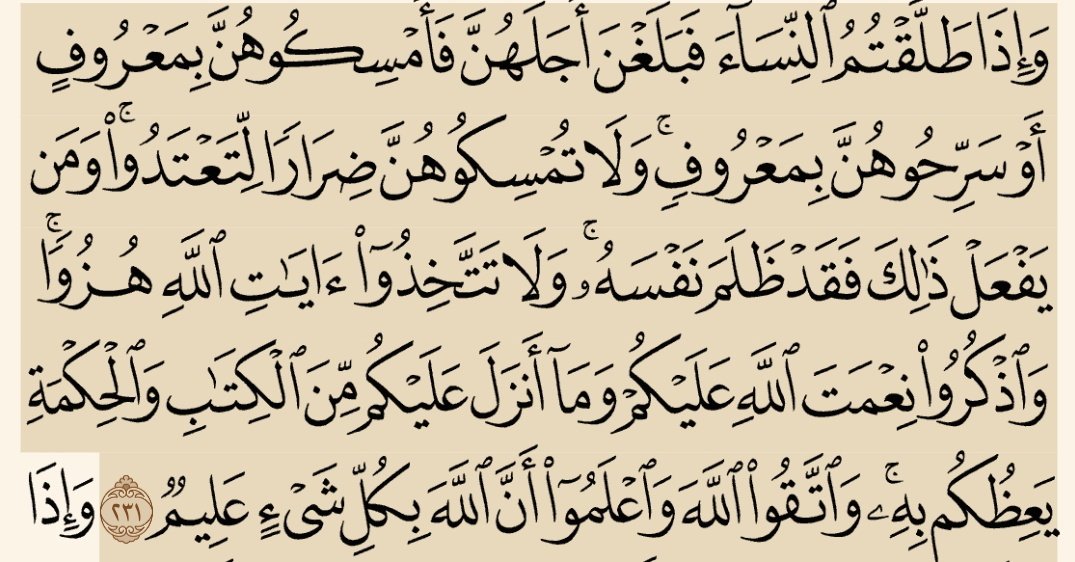 وَإِذَا طَلَّقْتُمُ ٱلنِّسَآءَ فَبَلَغْنَ أَجَلَهُنَّ فَأَمْسِكُوهُنَّ بِمَعْرُوفٍ
أَوْ سَرِّحُوهُنَّ بِمَعْرُوفٍۚ وَلَا تُمْسِكُوهُنَّ ضِرَارًا لِّتَعْتَدُوا۟ۚ وَمَن
يَفْعَلْ ذَٰلِكَ فَقَدْ ظَلَمَ نَفْسَهُۥۚ وَلَا تَتَّخِذُوٓا۟ ءَايَـٰتِ ٱللَّهِ هُزُوًاۚ
وَٱذْكُرُوا۟ نِعْمَتَ ٱللَّهِ عَلَيْكُمْ وَمَآ أَنزَلَ عَلَيْكُم مِّنَ ٱلْكِتَـٰبِ وَٱلْحِكْمَةِ
يَعِظُكُم بِهِۦۚ وَٱتَّقُوا۟ ٱللَّهَ وَٱعْلَمُوٓا۟ أَنَّ ٱللَّهَ بِكُلِّ شَىْءٍ عَلِيمٌ ٢٣١ وَإِذَا